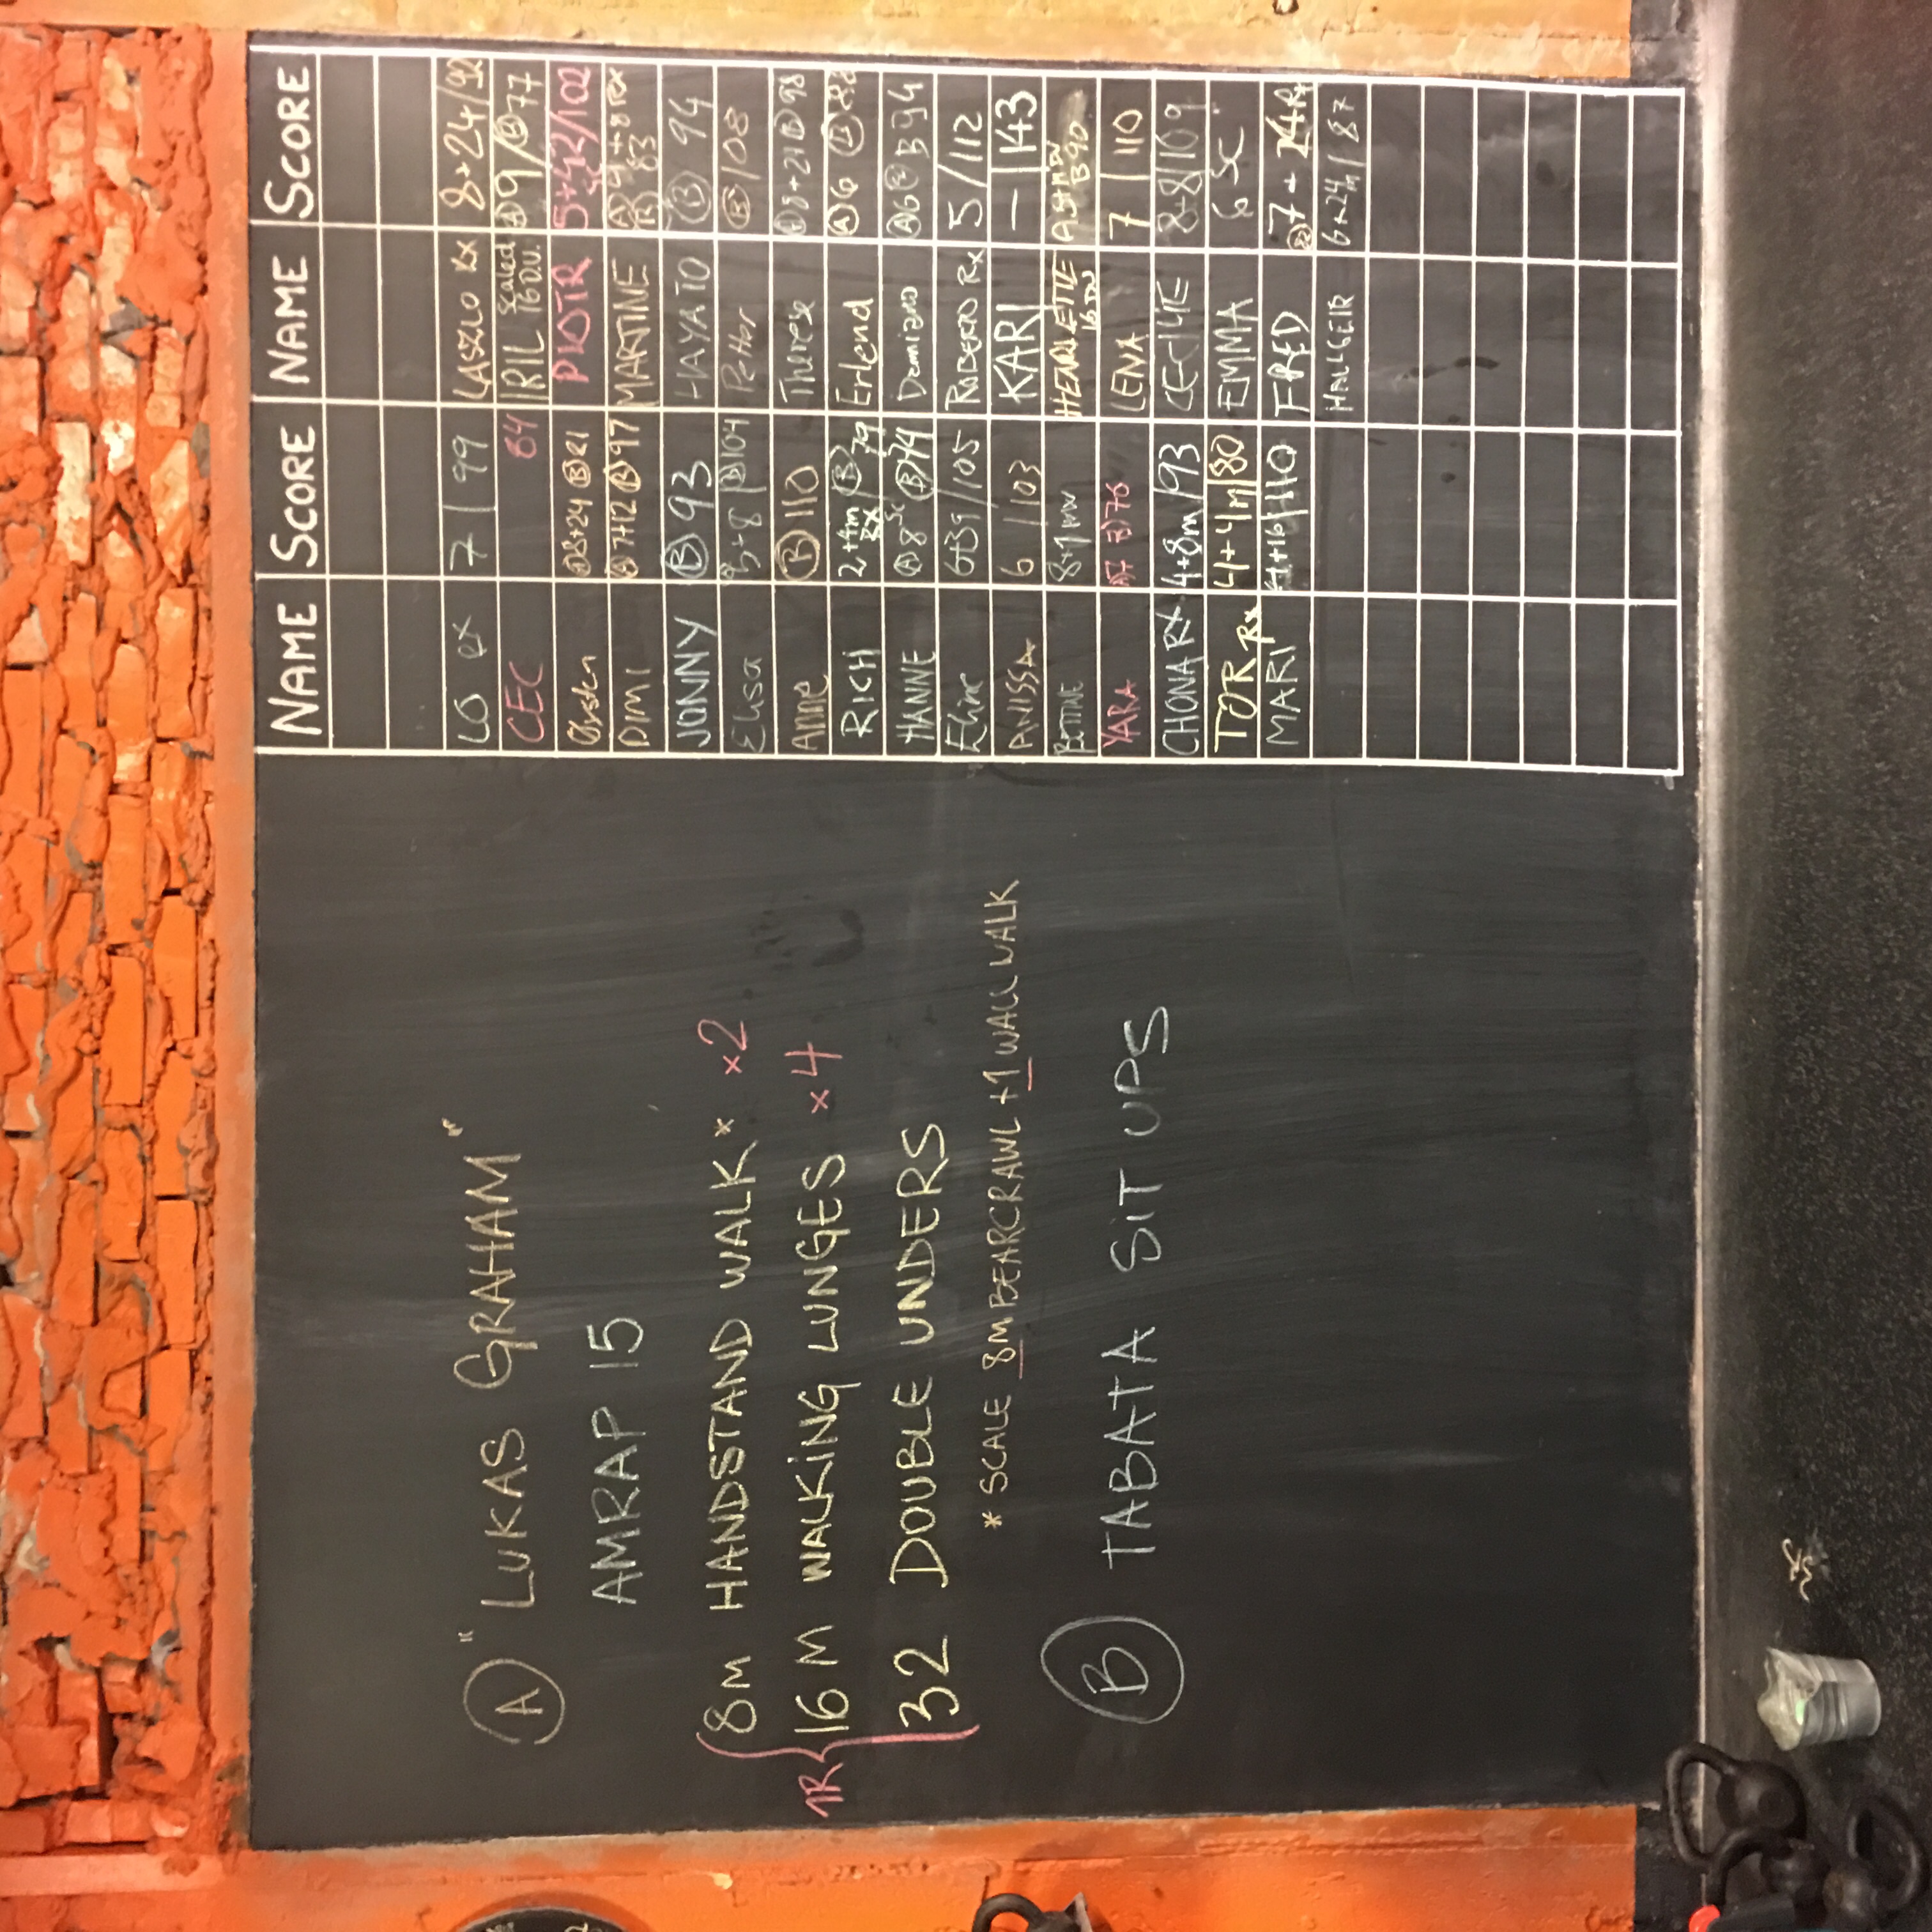 A "LUKAS GRAHAM"
AMRAP 15
8M HANDSTAND WALK* ×2
1R { 16 M WALKING LUNGES ×4
32 DOUBLE UNDERS
* SCALE 8M BEARCRAWL +1 WALL WALK
B TABATA SIT UPS
NAME SCORE NAME SCORE
LO RX 7 | 99 LASZLO RX 8+24/92
CEC 84 IRIL Scaled 16 D.U. A 9/B 77
Øystein A 8+24 B 81 PIOTR 5+42/102
DIMI A 7+12 B 97 MARTINE A 9+8 RX B 83
JONNY B 93 HAYATO B 94
Elisa 5+8 B 104 Petter B 108
Anne B 110 Therese A 8+21 B 98
RICH 2+4m RX B 79 Erlend A 6 B
HANNE A 8 Sc B 74 Damiano A 6 B 94
Eline 6+39/105 ROBERTO Rx 5/112
ANISSA 6/103 KARI — | 143
BETTINE 8+1 HENRIETTE 16 DU B 90
YARA A7 B)76 LENA 7 | 110
CHONA RX 4+8m/93 CECILIE 8+8/109
TOR Rx 4+4m|80 EMMA 6 SC
MARI +16/110 FRED 7+24R
HALLGEIR 6+24m/87